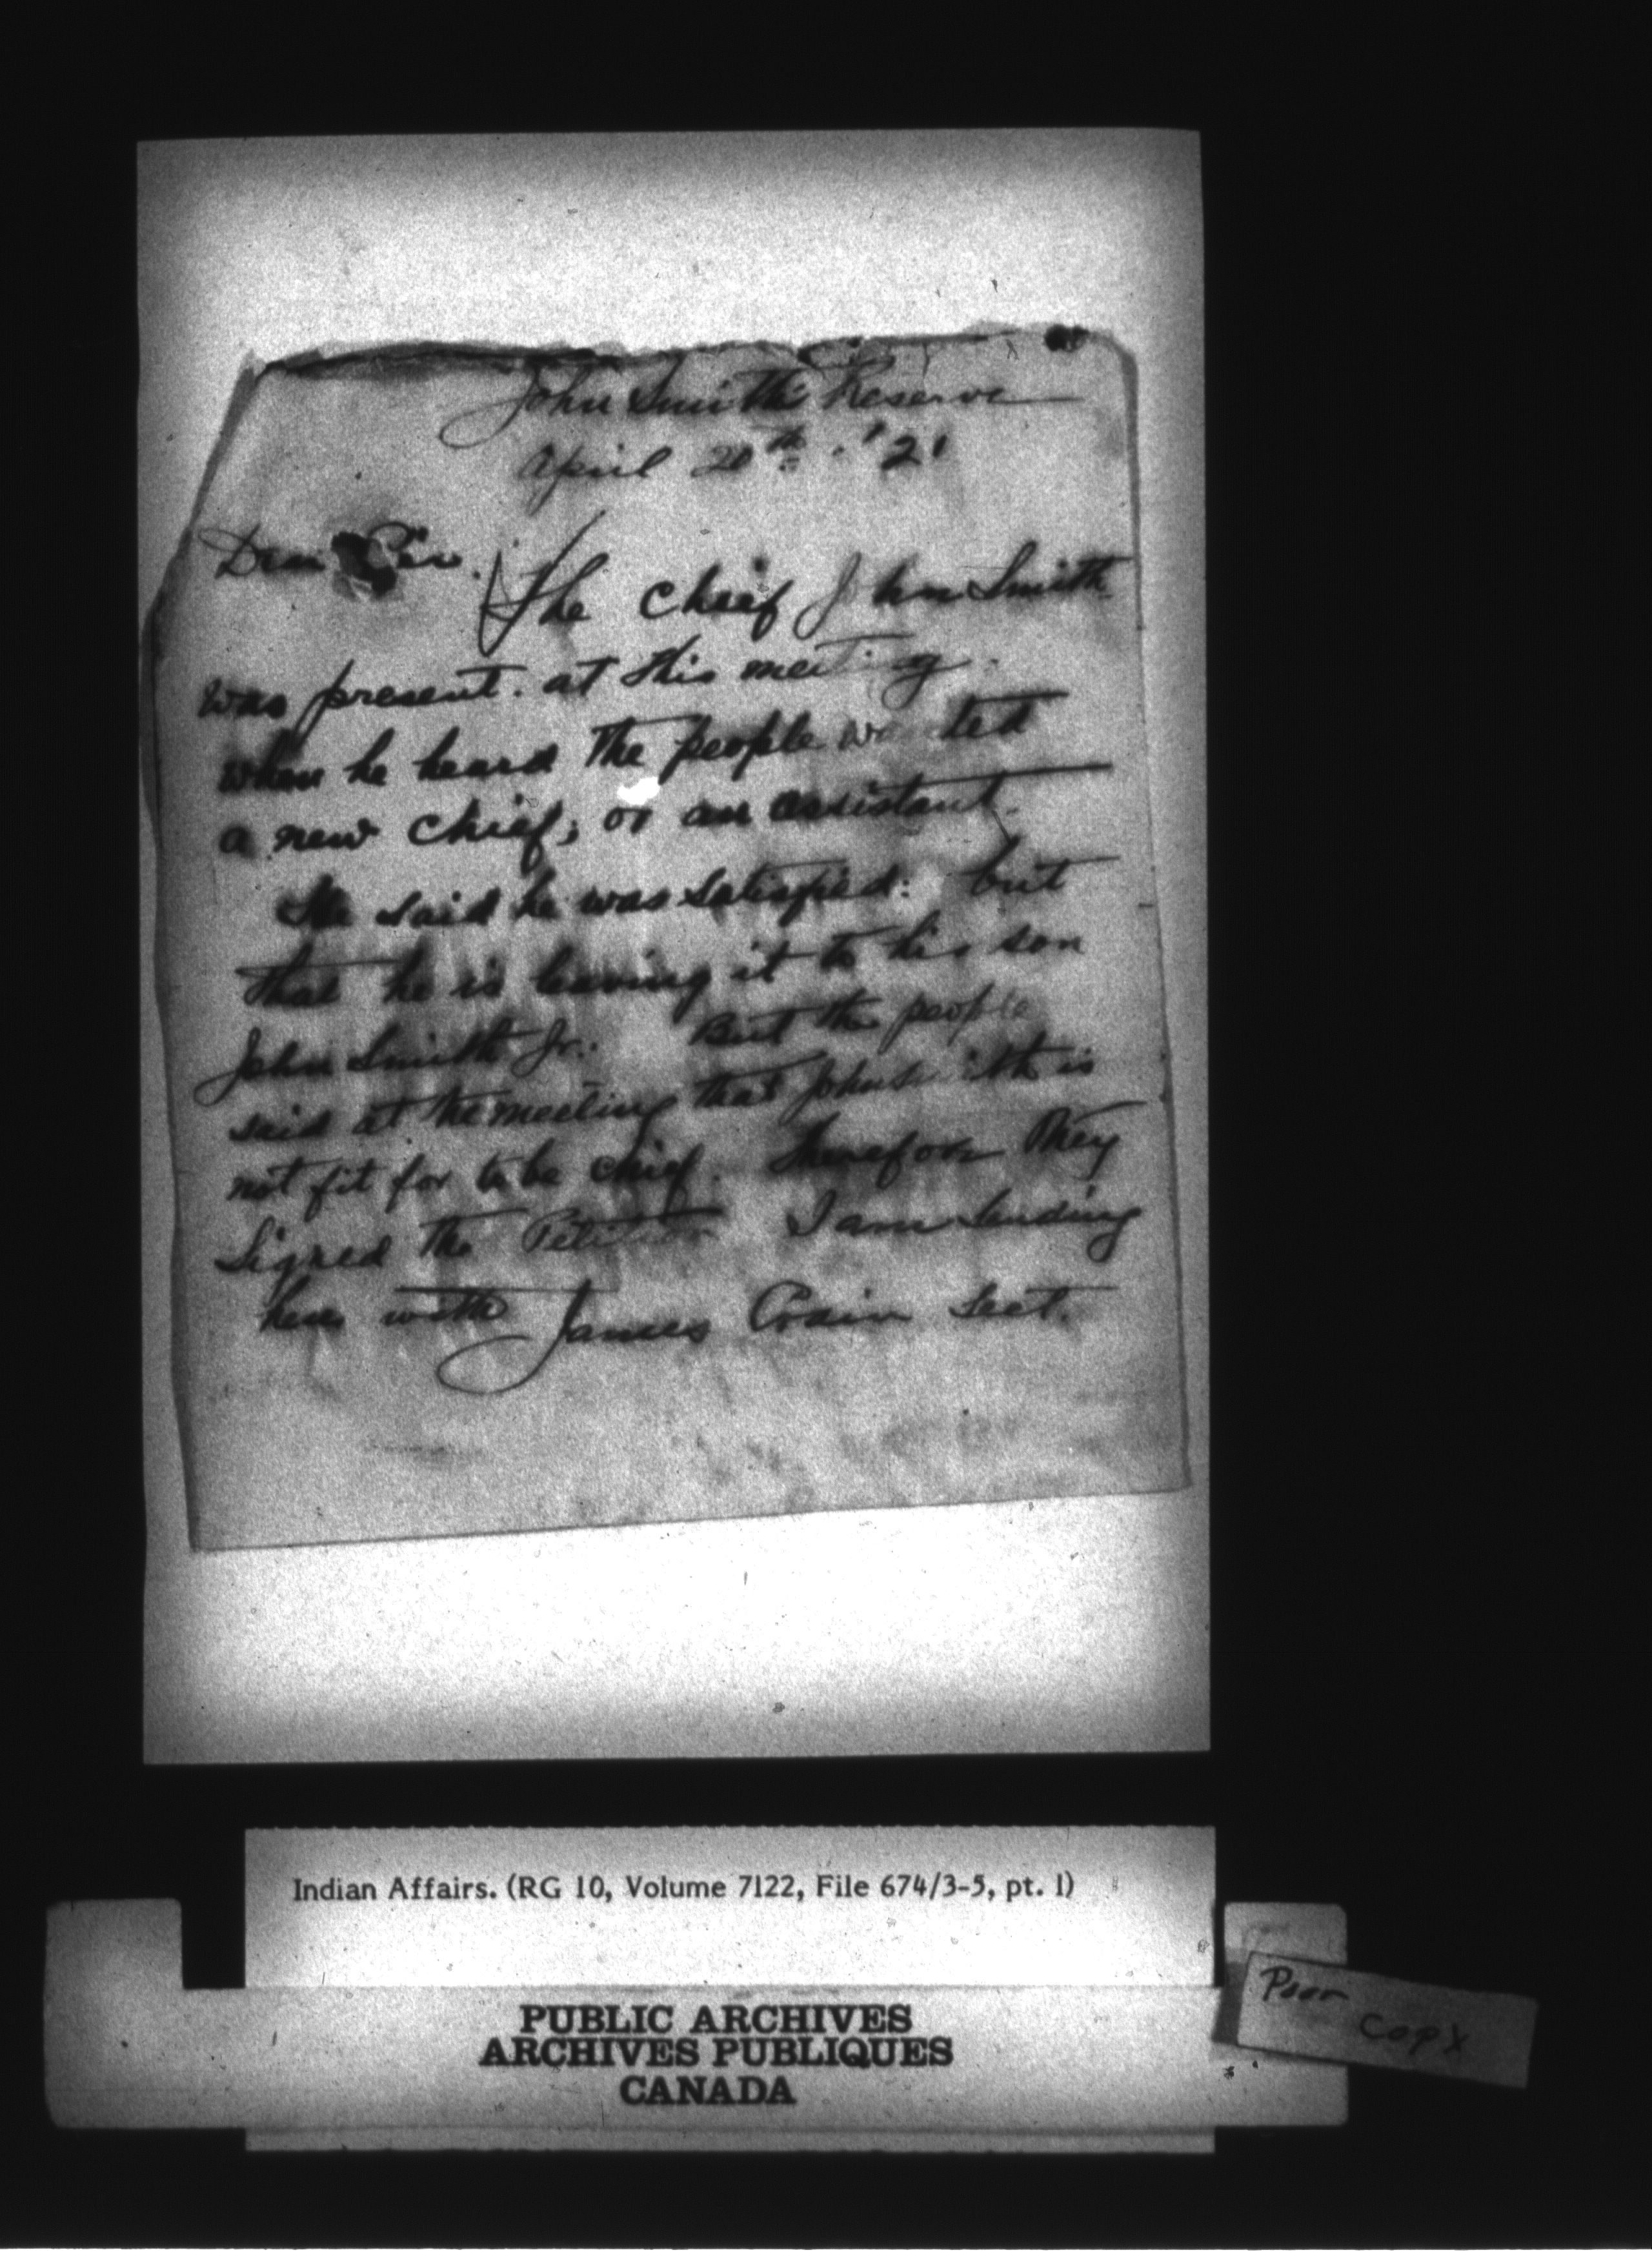 John Smith Reserve
April 20th. '21
Dear Sir.
The chief John Smith
was present. at this meeting.
when he heard the people wanted
a new chief; or an assistant.
He said he was satisfied: but
that he is leaving it to his son
John Smith Jr. But the people
said at the meeting that John Smith is
not fit for to be chief. Therefore they
Signed the Petition I am sending
here with James Crain Sect.
Indian Affairs. (RG 10, Volume 7122, File 674/3-5, pt. 1)
PUBLIC ARCHIVES
ARCHIVES PUBLIQUES
CANADA
Poor
Copy